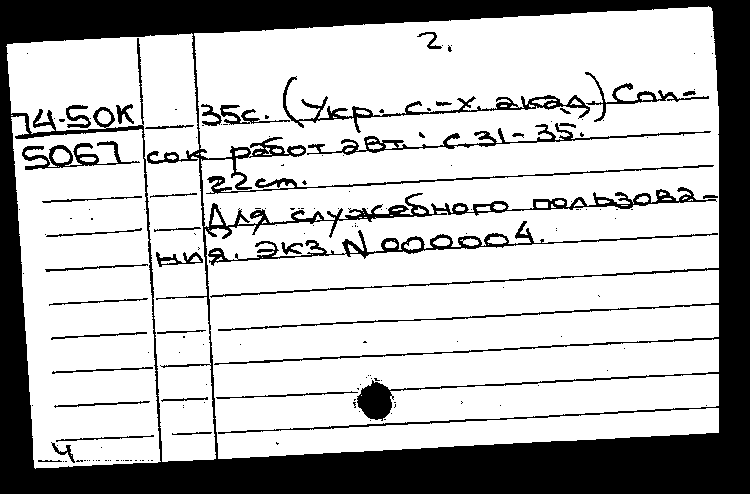 2.
74-50К 35с. (Укр. с.-х. акад.) Спи-
5067 сок работ авт.: с.31-35.
22см.
Для служебного пользова-
ния. Экз. N 000004.
Ч